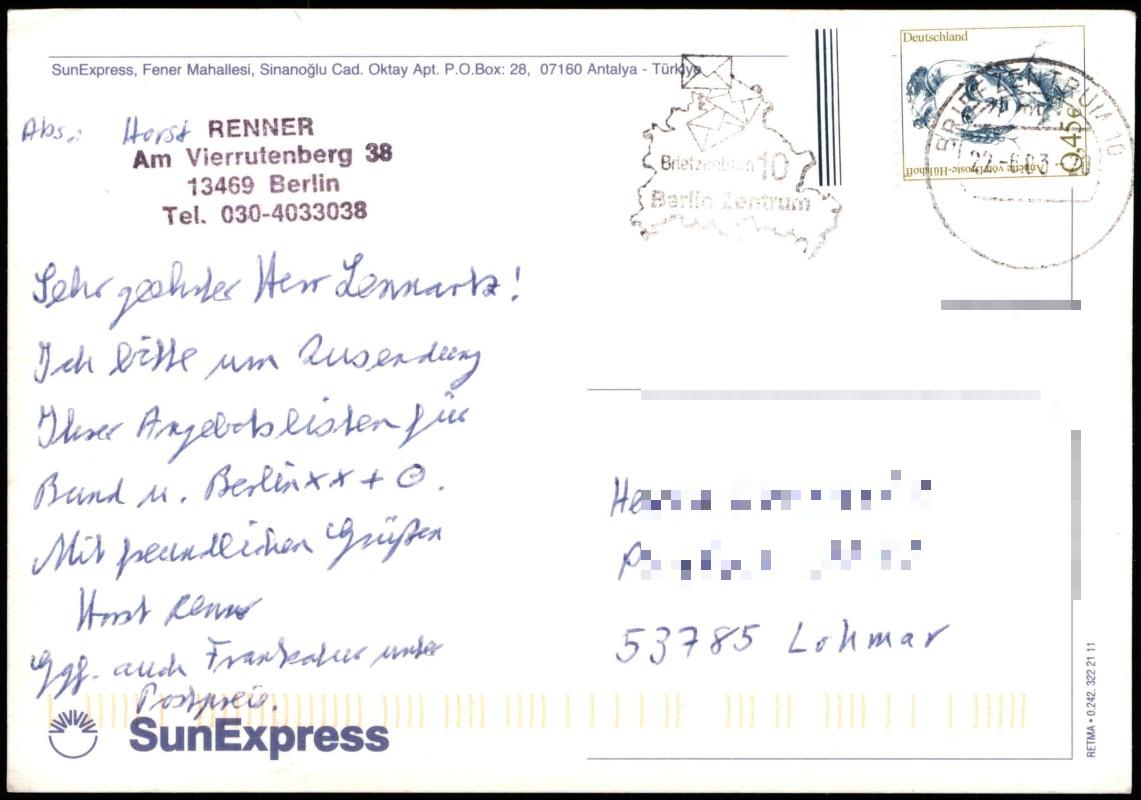 SunExpress, Fener Mahallesi, Sinanoğlu Cad. Oktay Apt. P.O.Box: 28, 07160 Antalya - Türkiye
Abs.: Horst RENNER
Am Vierrutenberg 38
13469 Berlin
Tel. 030-4033038
Briefzentrum 10
Berlin Zentrum
Deutschland
0,45€
Annette von Droste-Hülshoff
BRIEFZENTRUM 10
Sehr geehrter Herr Lennartz!
Ich bitte um Zusendung
Ihrer Angebotslisten für
Bund u. Berlin xx + ⊙.
Mit freundlichen Grüßen
Horst Renner
Ggf. auch Frankatur unter
Postpreis.
53785 Lohmar
SunExpress
RETMA • 0.242. 322 21 11